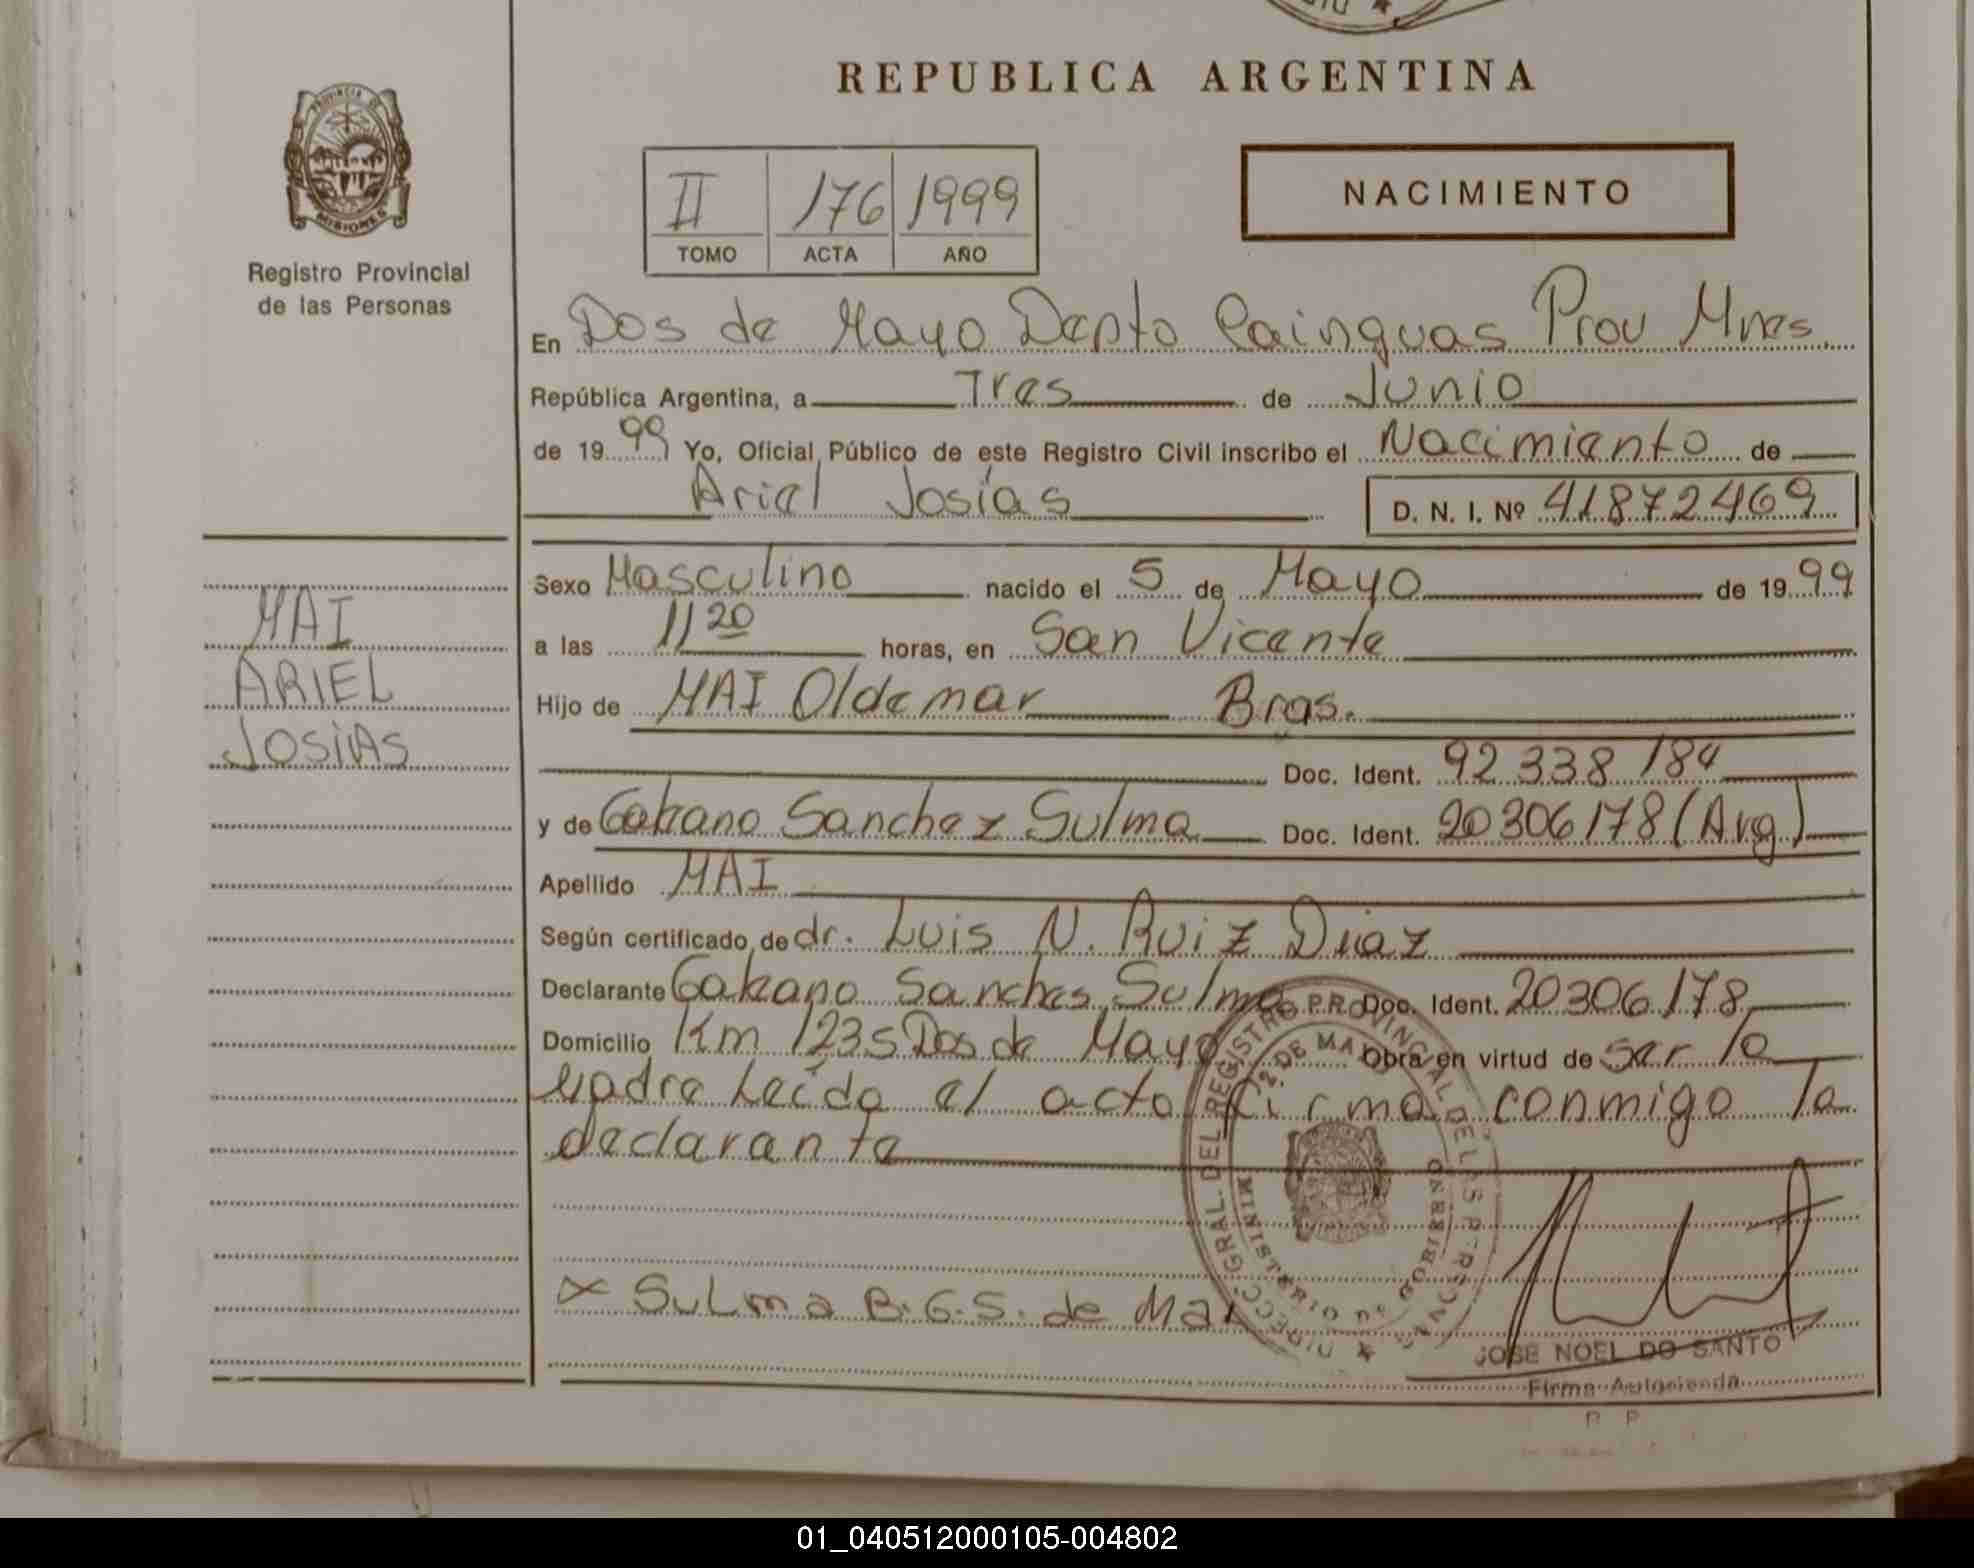 REPUBLICA ARGENTINA
PROVINCIA DE
MISIONES
Registro Provincial
de las Personas
II 176 1999
TOMO ACTA AÑO
NACIMIENTO
En Dos de Mayo Depto Cainguas Prov Mnes.
República Argentina, a Tres de Junio
de 1999 Yo, Oficial Público de este Registro Civil inscribo el Nacimiento de
Ariel Josías D. N. I. Nº 41872469
Sexo Masculino nacido el 5 de Mayo de 1999
a las 11 20 horas, en San Vicente
Hijo de MAI Oldemar Bras.
Doc. Ident. 92 338 184
y de Sanchez Sulma Doc. Ident. 20306178 (Arg)
Apellido MAI
Según certificado de dr. Luis N. Ruiz Diaz
Declarante Sanches Sulma Doc. Ident. 20306178
Domicilio Km 1235 Dos de Mayo Obra en virtud de ser la
Madre Leída el acto firma conmigo la
declarante
MAI
ARIEL
JOSÍAS
DIRECC. GRAL. DEL REGISTRO PROVINCIAL DE LAS PERSONAS
2 DE MAYO
MINISTERIO DE GOBIERNO
x Sulma B.G.S. de Mai
JOSE NOEL DO SANTO
Firma Autorizada
01_040512000105-004802